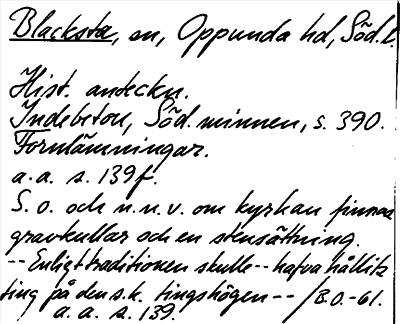 Blacksta, en, Oppunda hd, Söd. l.
Hist. anteckn.
Indebetou, Söd. minnen, s. 390.
Fornlämningar.
a. a. s. 139f.
S. o. och n. n. v. om kyrkan finnas
gravkullar och en stensättning.
-- Enligt traditionen skulle -- hafva hållits
ting på den s.k. tingshögen -- / B.O.-61.
a. a. s. 139.